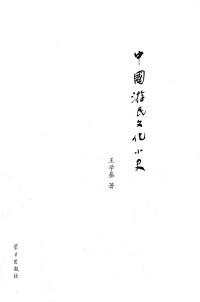 中國游民文化小史
王学泰 著
学习出版社